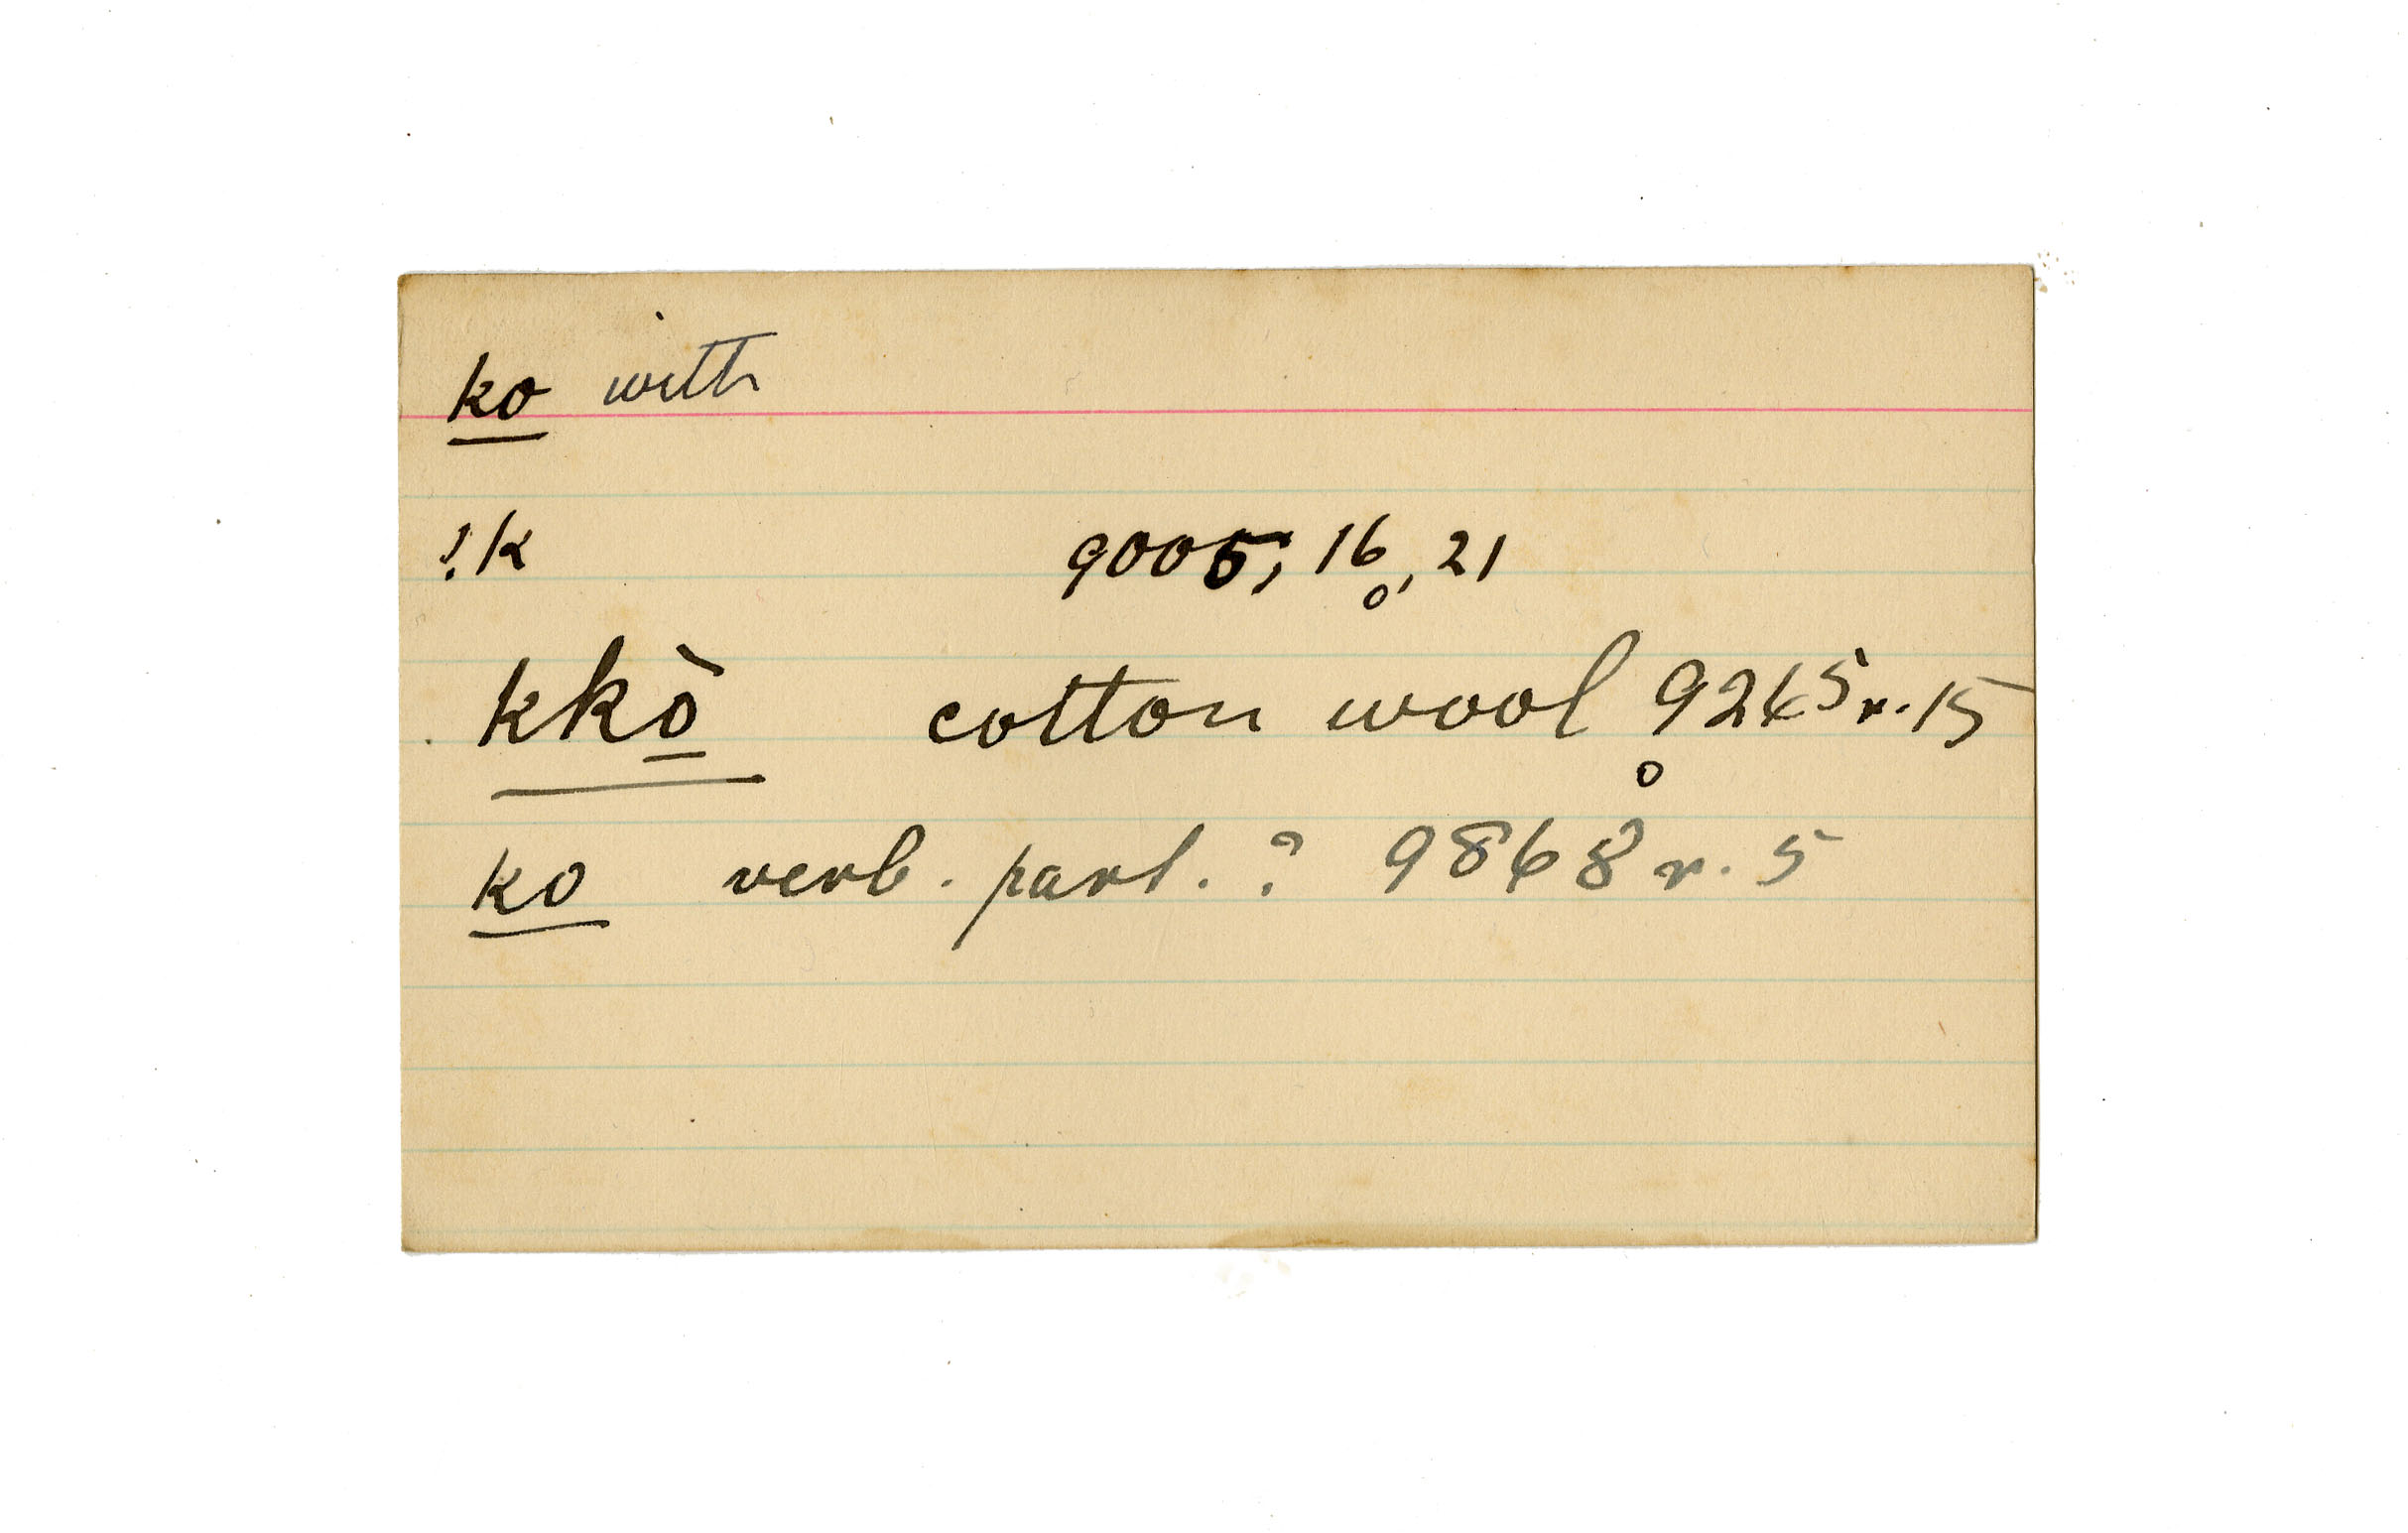 ko with
!k 9005, 16, 21
kkò̱ cotton wool 9265 r. 15
ko verb. part. ? 9868 r. 5